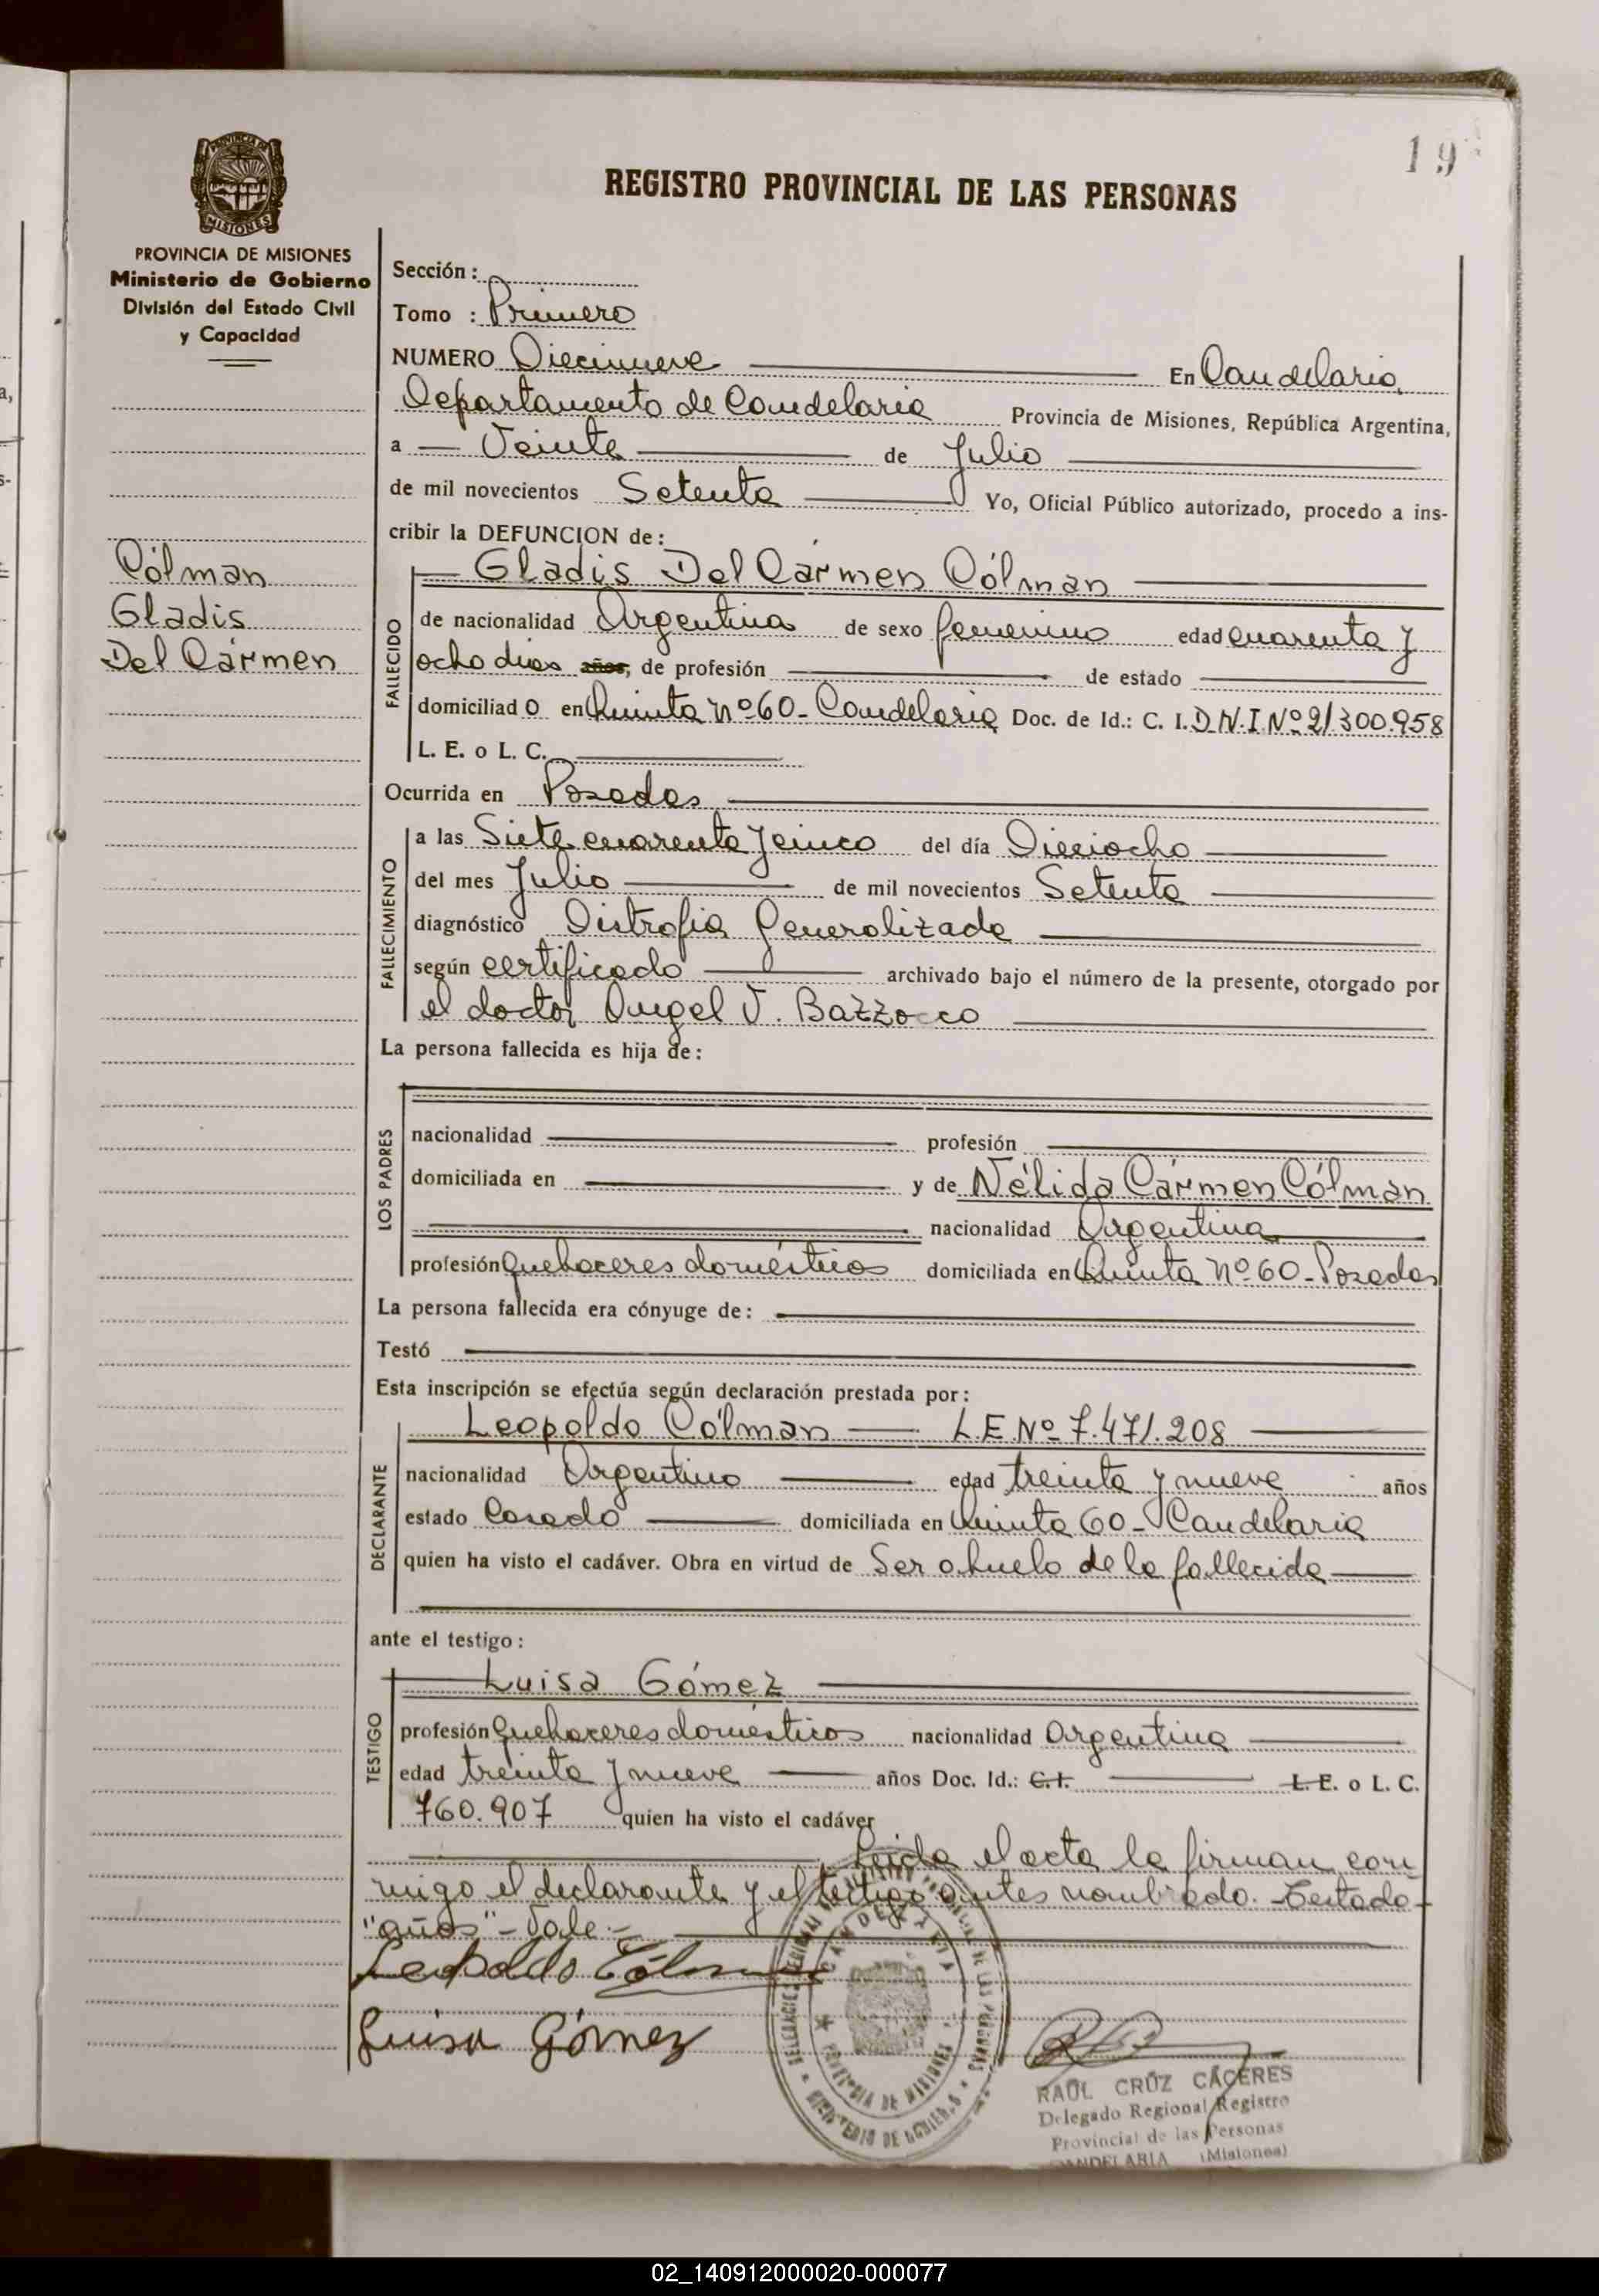 19
PROVINCIA DE MISIONES
Ministerio de Gobierno
División del Estado Civil
y Capacidad
REGISTRO PROVINCIAL DE LAS PERSONAS
Sección :
Tomo : Primero
NUMERO Diecinueve En Candelaria,
Departamento de Candelaria Provincia de Misiones, República Argentina,
a Veinte de Julio
de mil novecientos Setenta Yo, Oficial Público autorizado, procedo a ins-
cribir la DEFUNCION de :
Cólman
Gladis
Del Cármen
FALLECIDO
Gladis Del Cármen Cólman
de nacionalidad Argentina de sexo femenino edad cuarenta y
ocho dias años, de profesión de estado
domiciliad o en Quinta Nº 60 - Candelaria Doc. de Id.: C. I. D.N.I. Nº 21.300.958
L. E. o L. C.
Ocurrida en Posadas
FALLECIMIENTO
a las Siete cuarenta y cinco del día Dieciocho
del mes Julio de mil novecientos Setenta
diagnóstico Distrofia Generalizada
según certificado archivado bajo el número de la presente, otorgado por
el doctor Angel V. Bazzocco
La persona fallecida es hija de :
LOS PADRES
nacionalidad profesión
domiciliada en y de Nélida Cármen Cólman
nacionalidad Argentina
profesión Quehaceres domésticos domiciliada en Quinta Nº 60 - Posadas
La persona fallecida era cónyuge de :
Testó
Esta inscripción se efectúa según declaración prestada por :
DECLARANTE
Leopoldo Cólman L.E. Nº 7.471.208
nacionalidad Argentino edad treinta y nueve años
estado Casado domiciliada en Quinta 60 - Candelaria
quien ha visto el cadáver. Obra en virtud de Ser abuelo de la fallecida
ante el testigo :
TESTIGO
Luisa Gómez
profesión Quehaceres domésticos nacionalidad Argentina
edad treinta y nueve años Doc. Id.: C. I. L. E. o L. C.
760.907 quien ha visto el cadáver
Leida el acta la firman con-
migo el declarante y el testigo antes nombrado. - Testado -
"años" - Vale -
Leopoldo Cólman
Luisa Gómez
CANDELARIA
PROVINCIA DE MISIONES
MINISTERIO DE GOBIERNO
RAÚL CRÚZ CÁCERES
Delegado Regional Registro
Provincial de las Personas
CANDELARIA (Misiones)
02_140912000020-000077